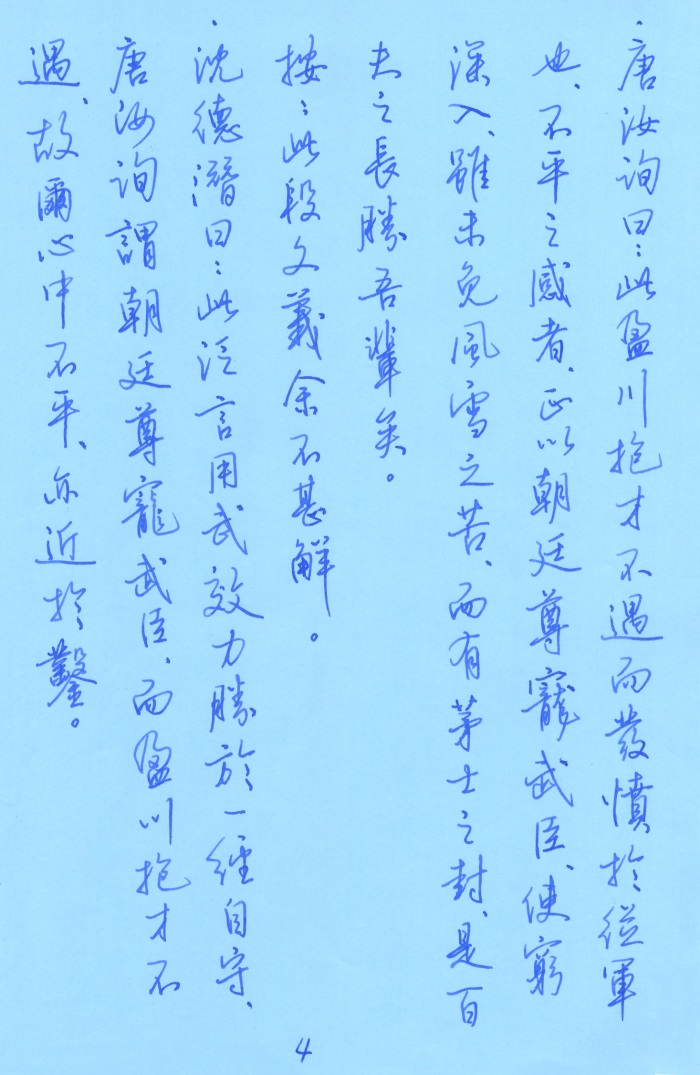 唐汝詢曰：此盈川抱才不遇而發憤於從軍
也、不平之感者、正以朝廷尊寵武臣、使窮
深入、雖未免風雪之苦、而有茅土之封、是百
夫之長勝吾輩矣。
按：此段文義余不甚解。
沈德潛曰：此泛言用武效力勝於一經自守、
唐汝詢謂朝廷尊寵武臣、而盈川抱才不
遇、故爾心中不平、亦近於鑿。
4